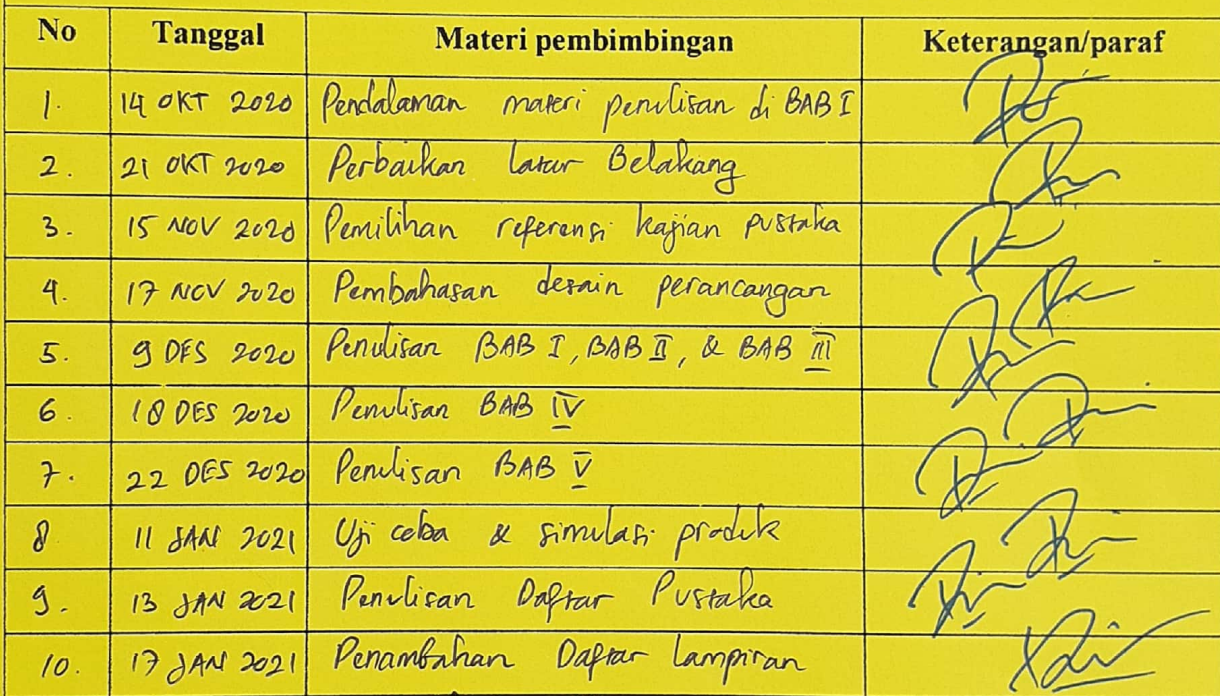 No Tanggal Materi pembimbingan Keterangan/paraf
1. 14 OKT 2020 Pendalaman materi penulisan di BAB I
2. 21 OKT 2020 Perbaikan Latar Belakang
3. 15 NOV 2020 Pemilihan referensi kajian pustaka
4. 17 NOV 2020 Pembahasan desain perancangan
5. 9 DES 2020 Penulisan BAB I, BAB II, & BAB III
6. 18 DES 2020 Penulisan BAB IV
7. 22 DES 2020 Penulisan BAB V
8 11 JAN 2021 Uji coba & simulasi produk
9. 13 JAN 2021 Penulisan Daftar Pustaka
10. 17 JAN 2021 Penambahan Daftar Lampiran